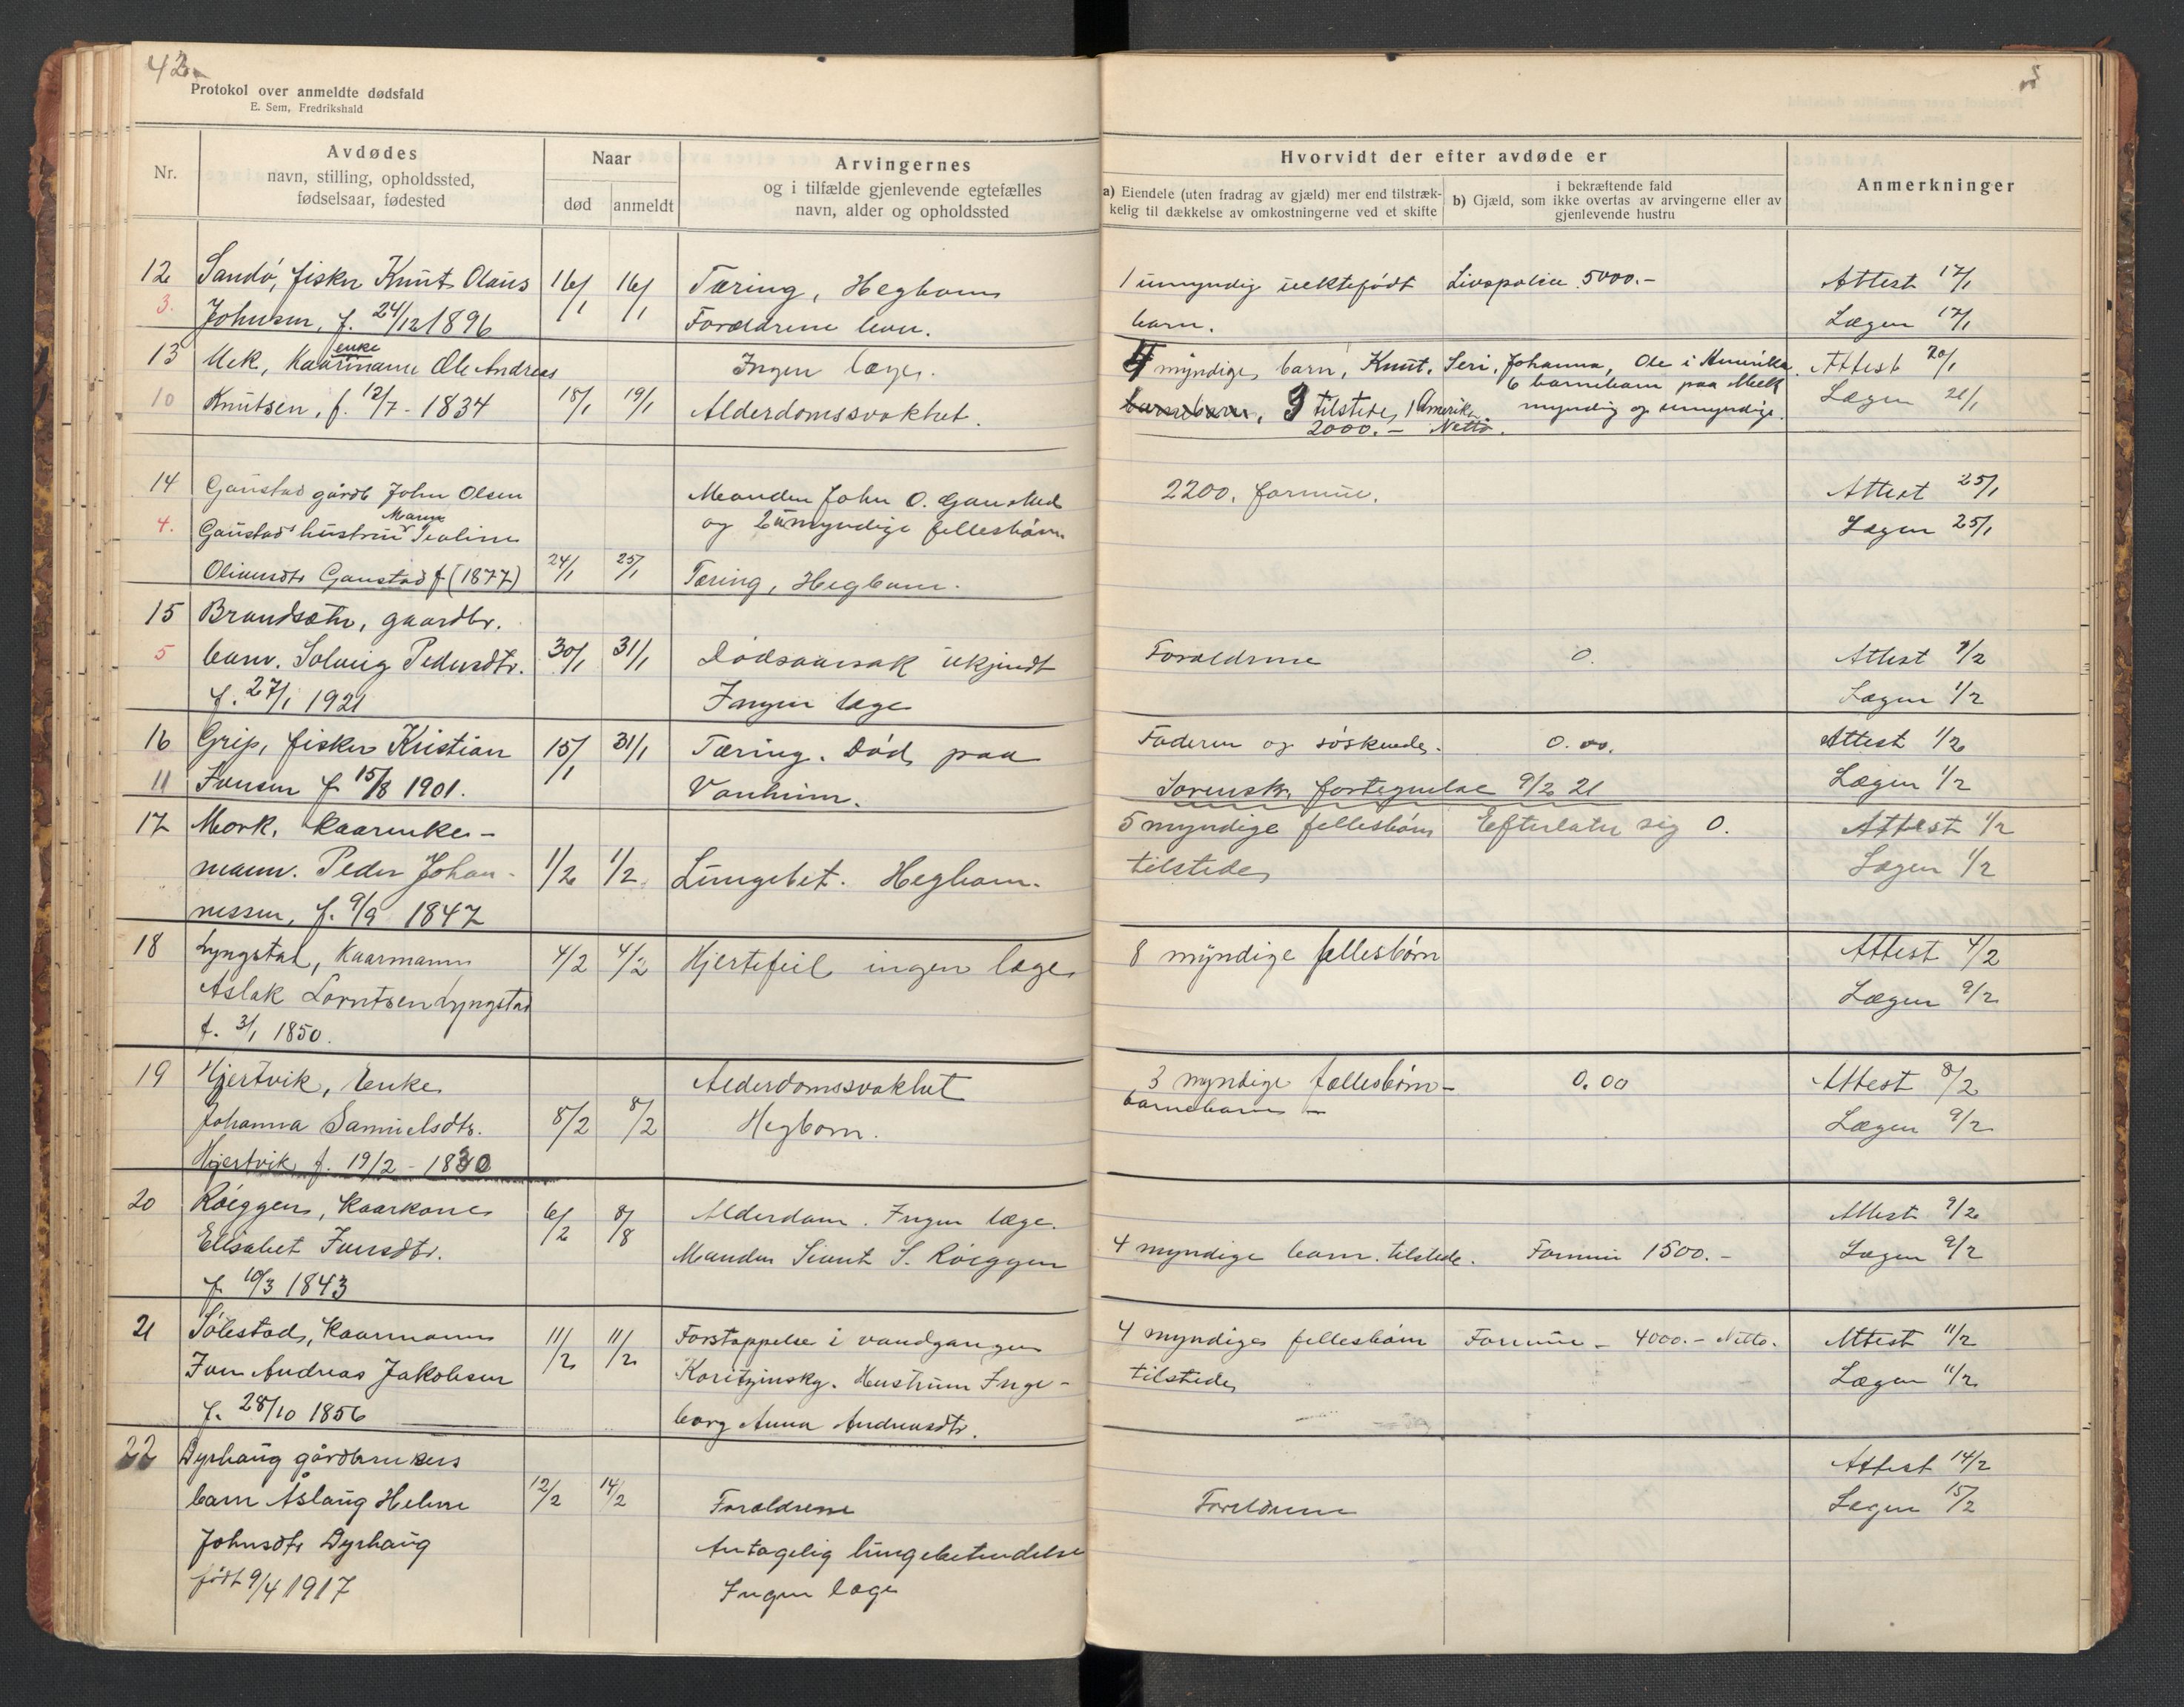 42
Protokol over anmeldte dødsfald
E. Sem, Fredrikshald
Nr.
Avdødes
navn, stilling, opholdssted,
fødselsaar, fødested
Naar
død
anmeldt
Arvingernes
og i tilfælde gjenlevende egtefælles
navn, alder og opholdssted
Hvorvidt der efter avdøde er
a) Eiendele (uten fradrag av gjæld) mer end tilstræk-
kelig til dækkelse av omkostningerne ved et skifte
b) Gjæld, som i bekræftende fald
ikke overtas av arvingerne eller av
gjenlevende hustru
Anmerkninger
12 Sandø, fisker Knut Olaus 16/1 16/1 Tæring, Hegbom 1 umyndig uektefødt Livspolice 5000.- Attest 17/1
3. Johnsen, f. 24/12 1896 Forældrene lever. barn. Lægen 17/1
13 Mek, Kaarmanns enke Ole Andreas Ingen læge. 4 myndige barn, Knut, Seri, Johanna, Ole i Amerika. Attest 20/1
6 barnebarn paa Meek
10 Knutsen, f. 12/7 - 1834 18/1 19/1 Alderdomssvakhet. barnebarn, 3 tilstede, 1 Amerika. myndig og umyndige. Lægen 21/1
2000.- Netto.
14 Gaustad gårdb John Olsen Manden John O. Gaustad 2200. formue. Attest 25/1
4. Gaustads hustru Maren Ieoline og 2 umyndige fellesbørn Lægen 25/1
Olinesdtr Gaustad f (1877) 24/1 25/1 Tæring, Hegbom.
15 Brandsæter, gaardbr.
5 barn. Solveig Pedersdtr. 30/1 31/1 Dødsaarsak ukjendt Forældrene 0. Attest 1/2
f. 27/1 1921 Ingen læge Lægen 1/2
16 Grip, fisker Kristian 15/1 31/1 Tæring. Død paa Faderen og søskende. 0.00. Attest 1/2
11 Jensen f 15/8 1901. Vanheim. Sorensk. fortegnelse 9/2 21 Lægen 1/2
17 Mork, Kaarenke- 5 myndige fellesbørn Efterlater sig 0. Attest 1/2
mann. Peder Johan- 1/2 1/2 Lungebet. Hegbom. tilstede Lægen 1/2
nessen, f. 9/9 1847
18 Lyngstad, Kaarmann 4/2 4/2 Hjertefeil ingen læge 8 myndige fellesbørn Attest 4/2
Aslak Lorntsen Lyngstad Lægen 9/2
f. 3/1 1850.
19 Hjertvik, Enke Alderdomssvakhet 3 myndige fællesbørn- 0.00 Attest 8/2
Johanna Samuelsdtr. 8/2 8/2 Hegbom. barnebarn - Lægen 9/2
Hjertvik f. 19/2 - 1830
20 Røeggen, Kaarkone 6/2 8/8 Alderdom. Ingen læge. Attest 9/2
Elisabet Iversdtr. Manden Sivert S. Røeggen 4 myndige barn. tilstede. Formue 1500.- Lægen 9/2
f. 10/3 1843
21 Solestad, Kaarmann 11/2 11/2 Forstoppelse i vandgangen 4 myndige fellesbørn Formue - 4000.- Netto. Attest 11/2
Iver Andreas Jakobsen Koritzinsky. Hustruen Inge- tilstede Lægen 11/2
f. 28/10 1856 borg Anna Andreasdtr.
22 Dyrhaug gårdbrukers Attest 14/2
barn Åslaug Helene 12/2 14/2 Forældrene Foreldrene Lægen 15/2
Johnsdtr Dyrhaug Antagelig lungebetendelse
født 9/4 1917 Ingen læge